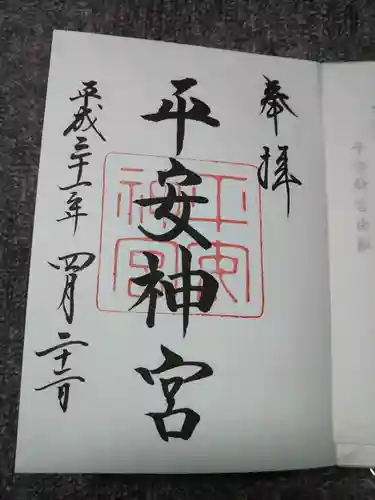 奉拝
平安神宮
平安神宮
平成三十一年 四月二十二日